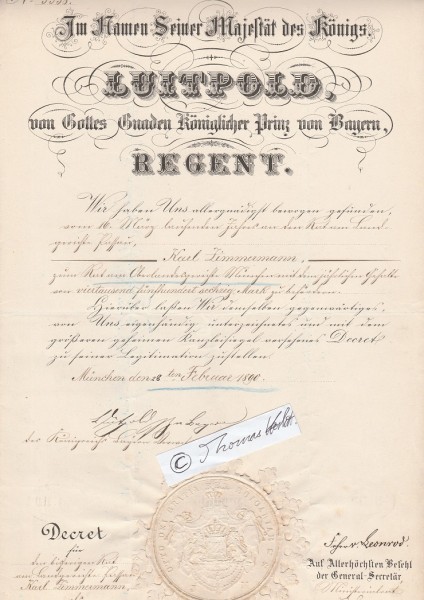 Im Namen Seiner Majestät des Königs.
LUITPOLD,
von Gottes Gnaden Königlicher Prinz von Bayern,
REGENT.
Wir haben Uns allergnädigst bewogen gefunden,
vom 16. März laufenden Jahres an den Rat am Land-
gerichte Passau,
Karl Zimmermann,
zum Rat am Oberlandesgerichte München mit dem jährlichen Gehalte
von viertausend fünfhundert sechzig Mark zu befördern.
Hierüber laßen Wir demselben gegenwärtiges,
von Uns eigenhändig unterzeichnetes und mit dem
größeren geheimen Kanzleisiegel versehenes Decret
zu seiner Legitimation zustellen.
München den 28ten Februar 1890.
Luitpold Prinz von Bayern
des Königreichs Bayern Verweser
© Thomas
Decret
für
den bisherigen Rat
am Landgerichte Passau
Karl Zimmermann,
Frhr. v. Leonrod.
Auf Allerhöchsten Befehl
der General-Secretär